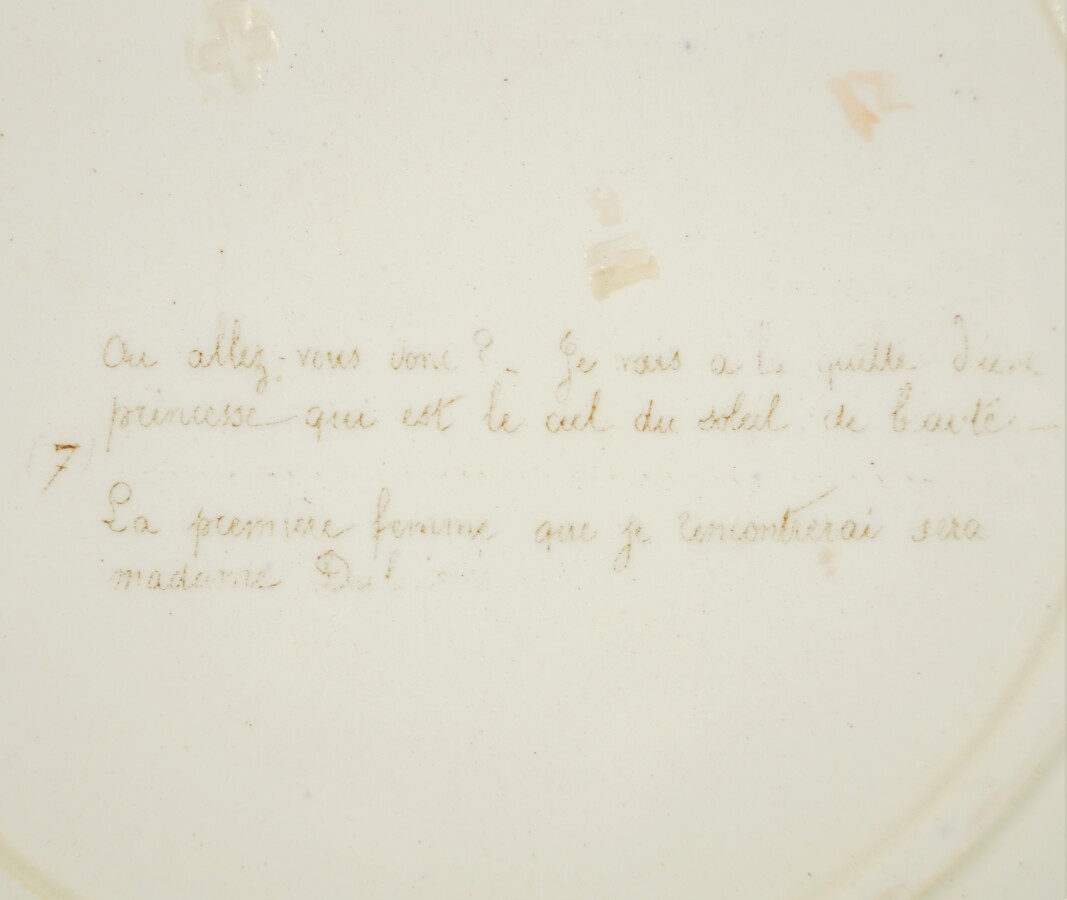 Ou allez-vous donc ? - Je vais a la quette d'une
princesse qui est le ciel du soleil de beauté -
7
La première femme que je rencontrerai sera
madame